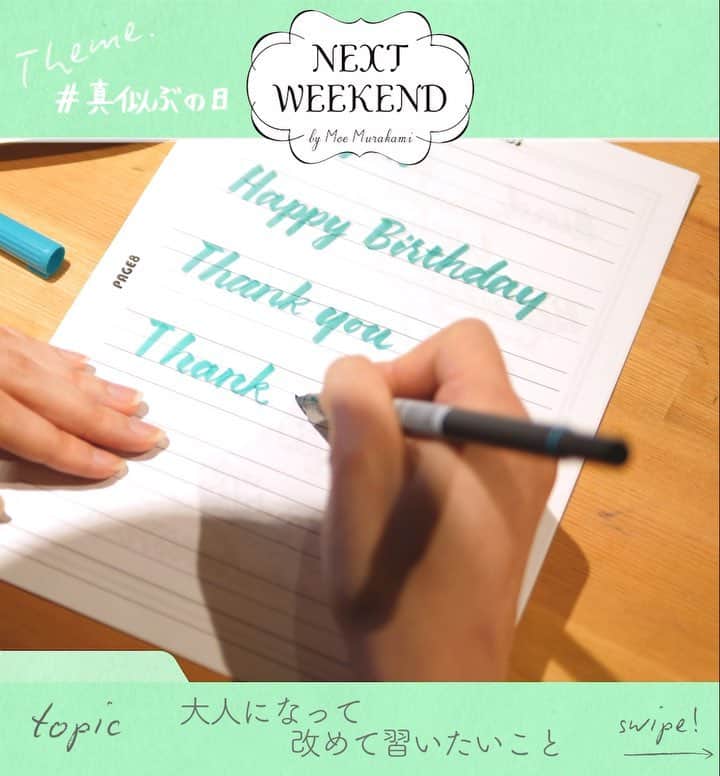 Theme.
#真似ぶの日
NEXT
WEEKEND
by Moe Murakami
Happy Birthday
Thank you
Thank
PAGE8
topic
大人になって
改めて習いたいこと
swipe!